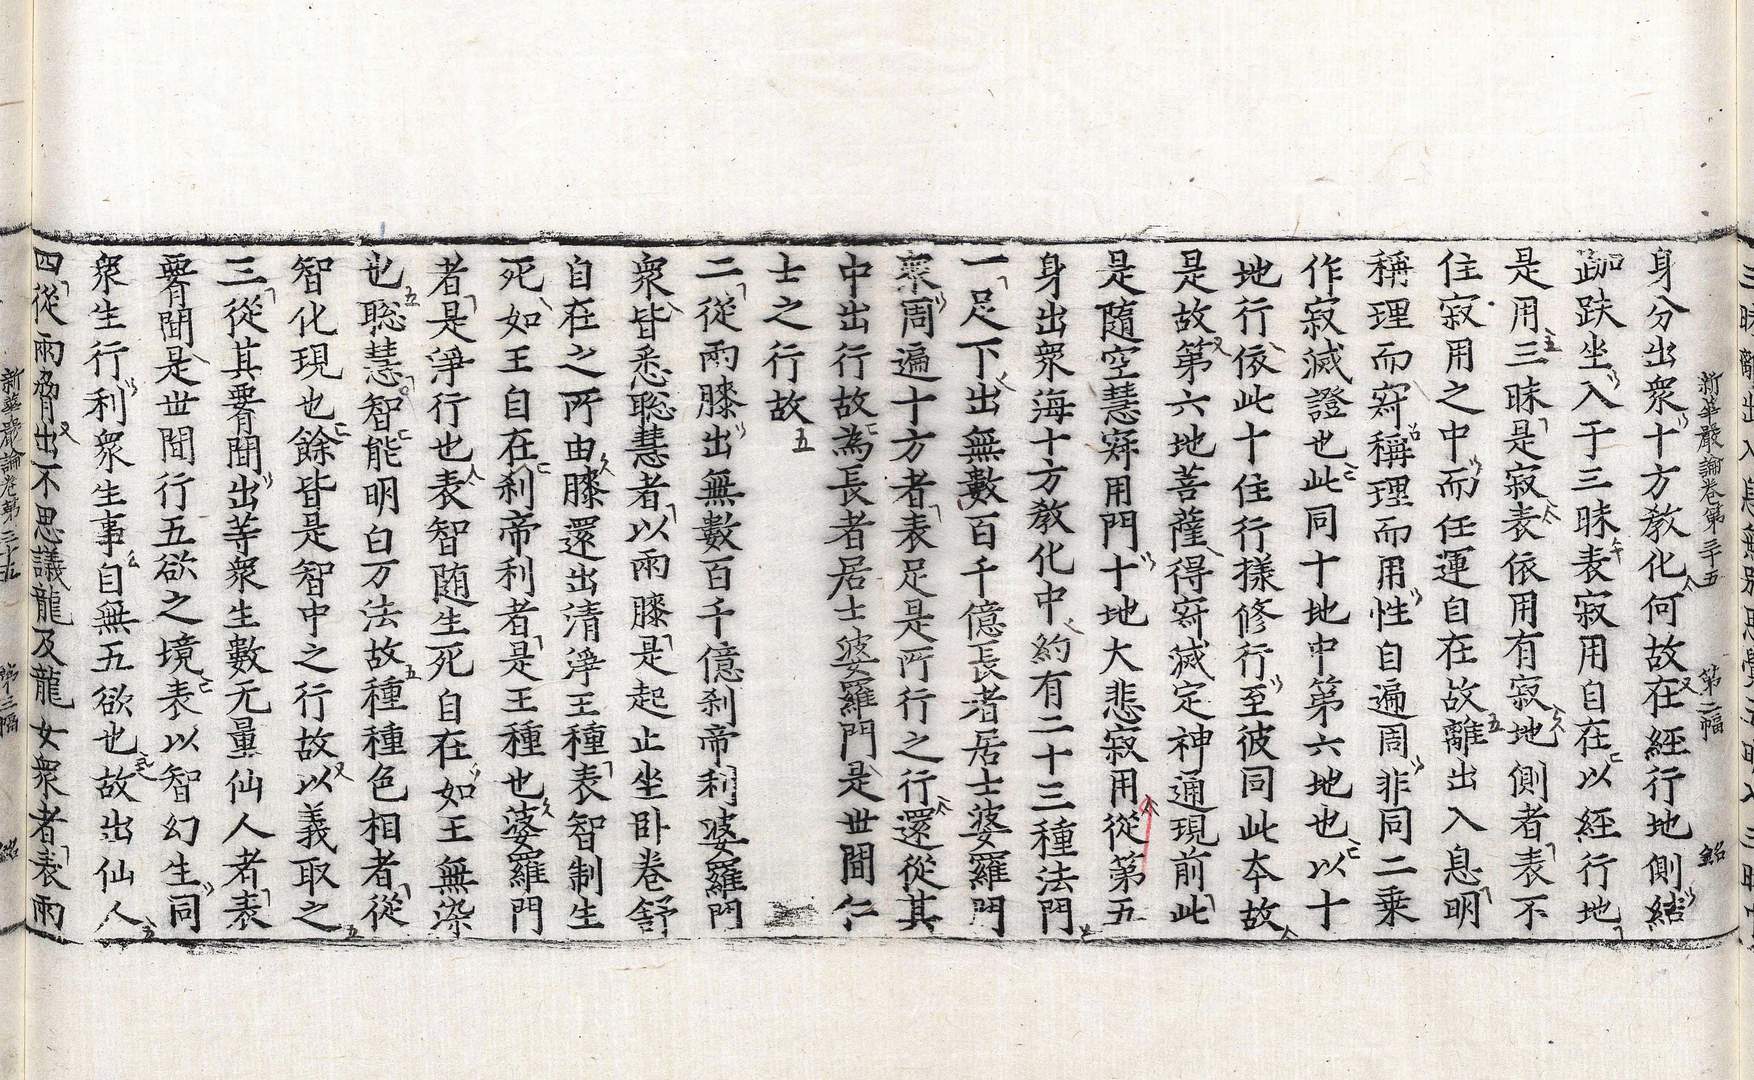 新華嚴論卷第三十五　第二幅　銘
身分出衆十方教化何故在經行地側結
跏趺坐入于三昧表寂用自在以經行地
是用三昧是寂表依用有寂地側者表不
住寂用之中而任運自在故離出入息明
稱理而寂稱理而用性自遍周非同二乗
作寂滅證也此同十地中第六地也以十
地行依此十住行樣修行至彼同此夲故
是故第六地菩薩得寂滅定神通現前此
是隨空慧寂用門十地大悲寂用從第五
身出衆海十方教化中約有二十三種法門
一足下出無數百千億長者居士婆羅門
衆周遍十方者表足是所行之行還從其
中出行故為長者居士婆羅門是世間仁
士之行故
二從兩膝出無數百千億刹帝利婆羅門
衆皆悉聡慧者以兩膝是起止坐卧卷舒
自在之所由膝還出清淨王種表智制生
死如王自在刹帝利者是王種也婆羅門
者是淨行也表智随生死自在如王無染
也聡慧智能明白万法故種種色相者從
智化現也餘皆是智中之行故以義取之
三從其臀間出等衆生數无量仙人者表
臀間是世間行五欲之境表以智幻生同
衆生行利衆生事自無五欲也故出仙人
四從兩脅出不思議龍及龍女衆者表兩
新華嚴論卷第三十五　第三幅　銘